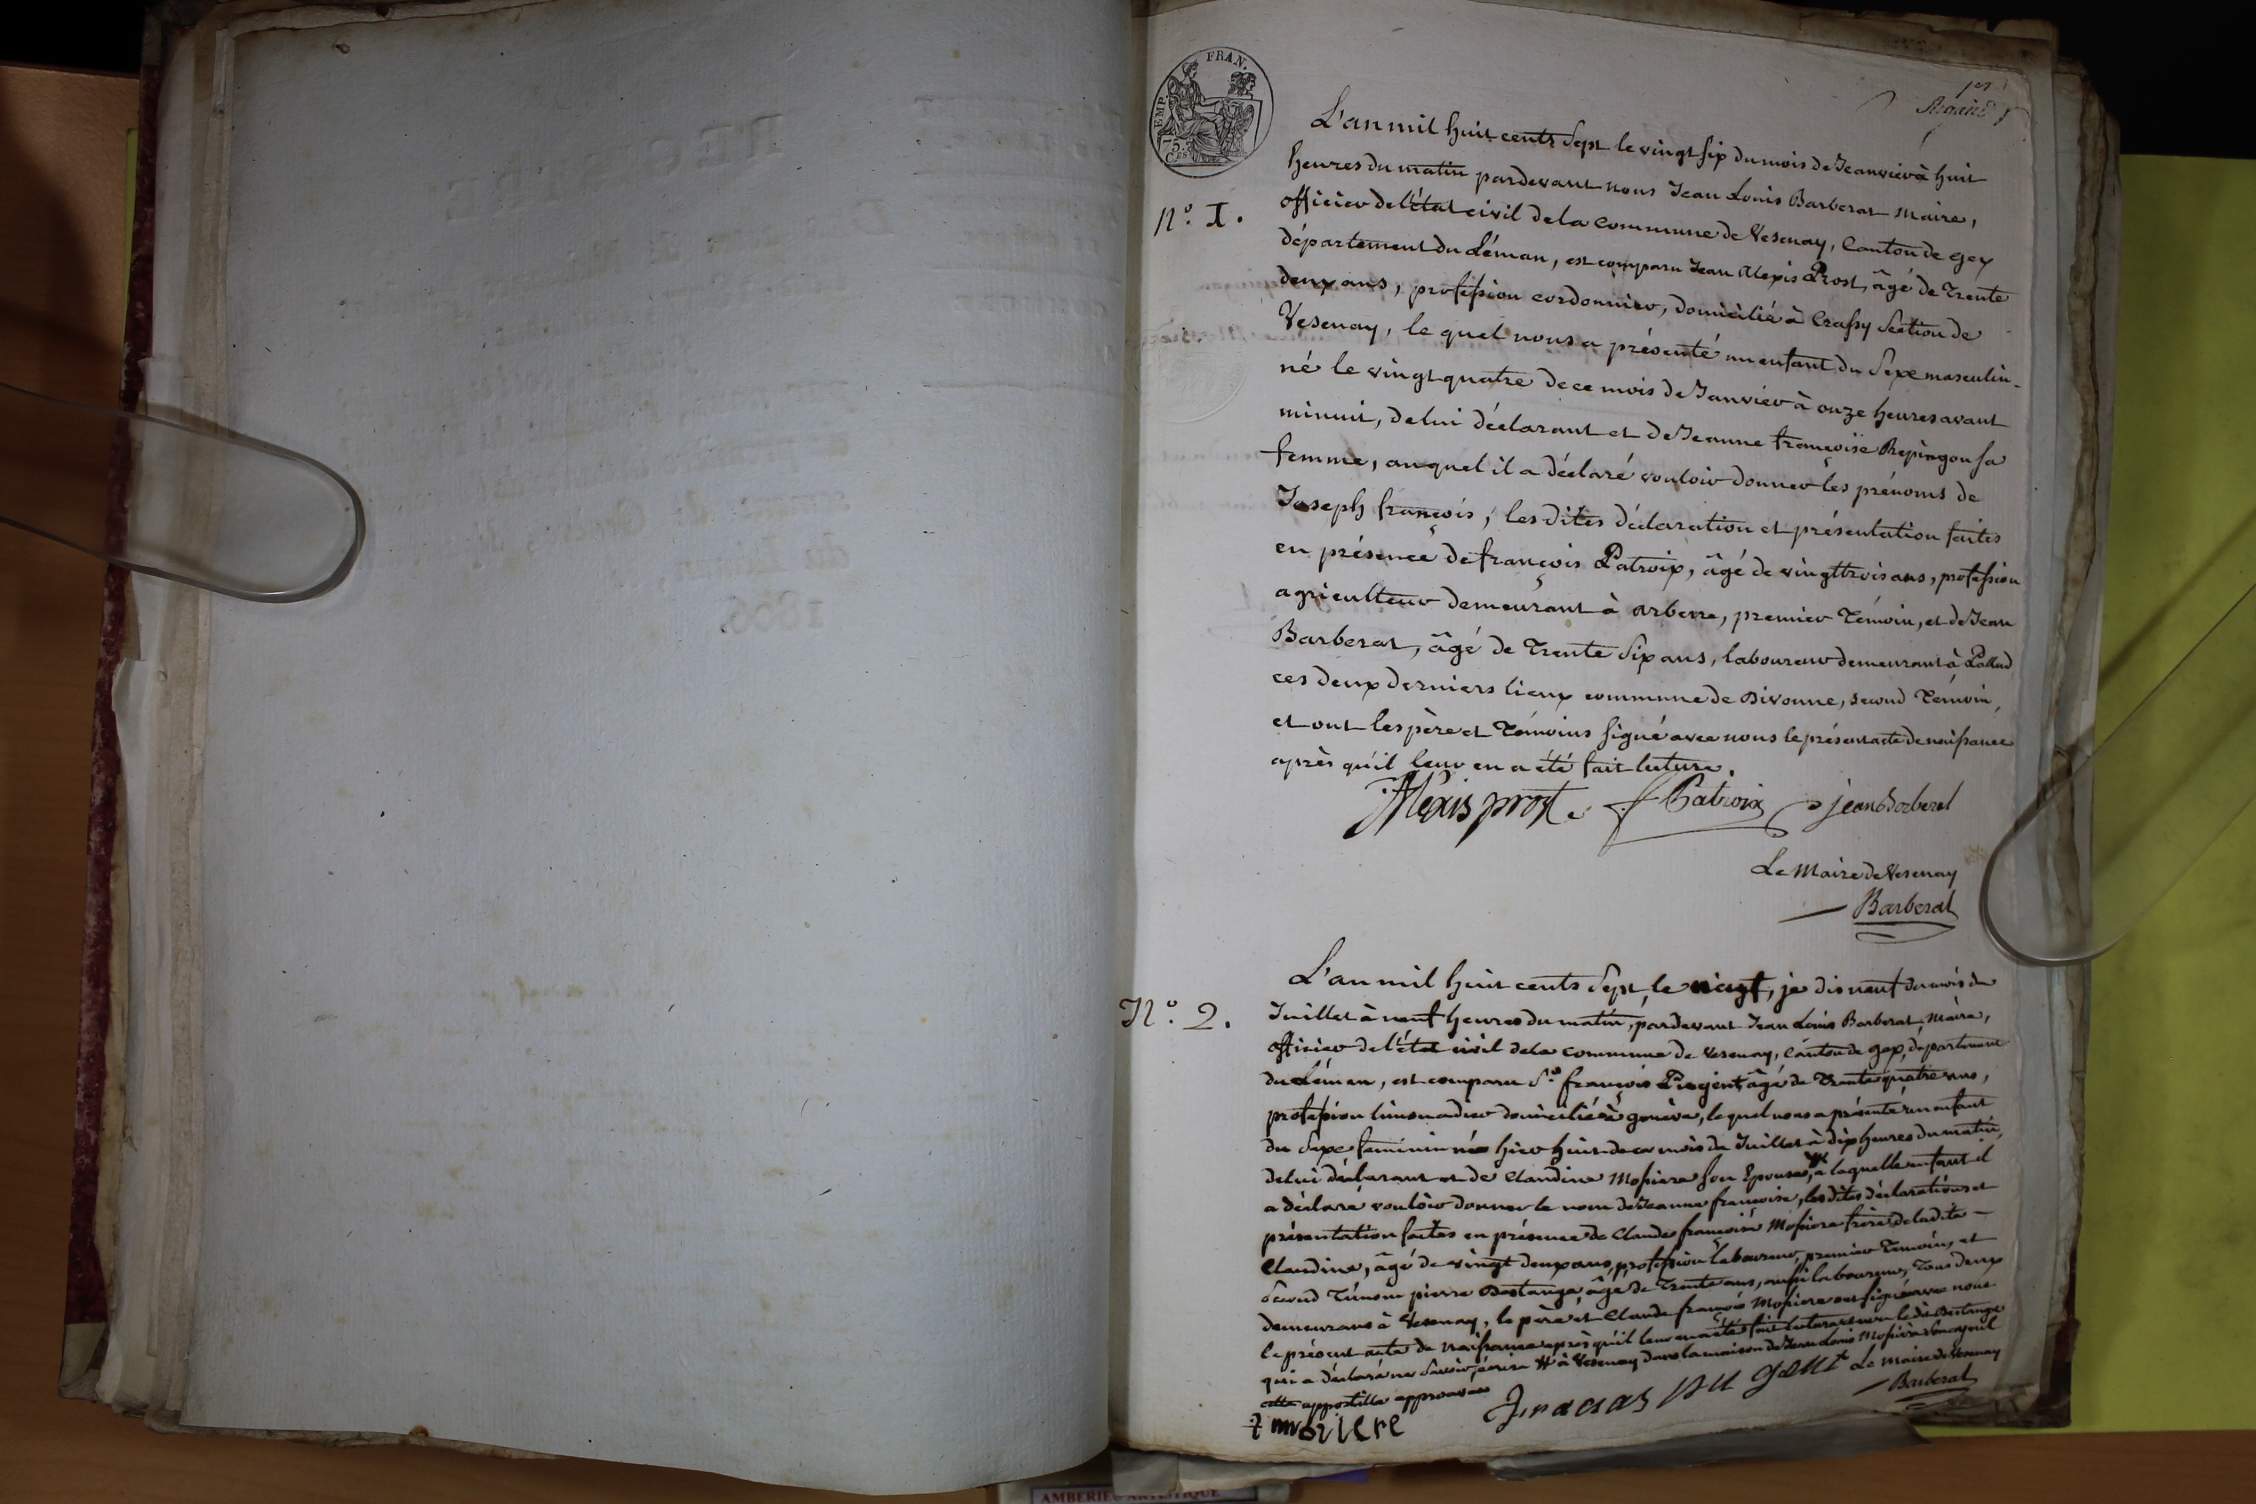 EMP. FRAN.
75.
Ces
1er
N.º 1.
L'an mil huit cents Sept le vingt six du mois de Jeanvier à huit
heures du matin pardevant nous Jean Louis Barberat Maire,
officier de l'état civil de la commune de Vesenay, Canton de gex
département du Léman, est comparu Jean Alexis Prost, âgé de Trente
deux ans, profession cordonnier, domicilié à Crassy Séction de
Vesenay, le quel nous a présenté un enfant du Sexe masculin
né le vingt quatre de ce mois de Janvier à onze heures avant
minuit, de lui déclarant et de Jeanne françoise Repingon sa
femme, auquel il a déclaré vouloir donner les prénoms de
Joseph françois; les dites déclaration et présentation faites
en présence de françois Patroix, âgé de vingt trois ans, profession
agriculteur demeurant à arberre, premier Témoin, et de Jean
Barberat, âgé de Trente Six ans, laboureur demeurant à
ces deux derniers lieux commune de Divonne, second Témoin,
et ont les père et Témoins signé avec nous le présent acte de naissance
après qu'il leur en a été fait lecture.
Alexis prost f Patroix jean Barberat
Le Maire de Vesenay
Barberat
N.º 2.
L'an mil huit cents Sept, le vingt, je dis neuf du mois de
Juillet à neuf heures du matin, pardevant Jean Louis Barberat, Maire,
officier de l'état civil de la commune de Vesenay, Canton de gex, département
du Léman, est comparu Sr. françois Pugent, âgé de Trente quatre ans,
profession limonadier domicilié à genève, lequel nous a présenté un enfant
du Sexe féminin née hier huit de ce mois de Juillet à dix heures du matin,
de lui déclarant et de Claudine Mossiere son Epouse, # à laquelle enfant il
a déclaré vouloir donner le nom de Jeanne françoise, les dites déclarations et
présentation faites en présence de Claude françois Mossiere frère de ladite
Claudine, âgé de vingt deux ans, profession laboureur, premier Témoin, et
Second Témoin pierre Bastange âgé de Trente ans, aussi laboureur, Tous deux
demeurans à Vesenay, le père et Claude françois Mossiere ont signé avec nous
le présent acte de naissance après qu'il leur en a été fait lecture le dit Bastange
qui a déclaré ne Savoir écrire # à Vesenay dans la maison de Jean Louis Mossiere
cette appostille approuvée
Le Maire de Vesenay
Barberat
AMBERIEU ARTISTIQUE